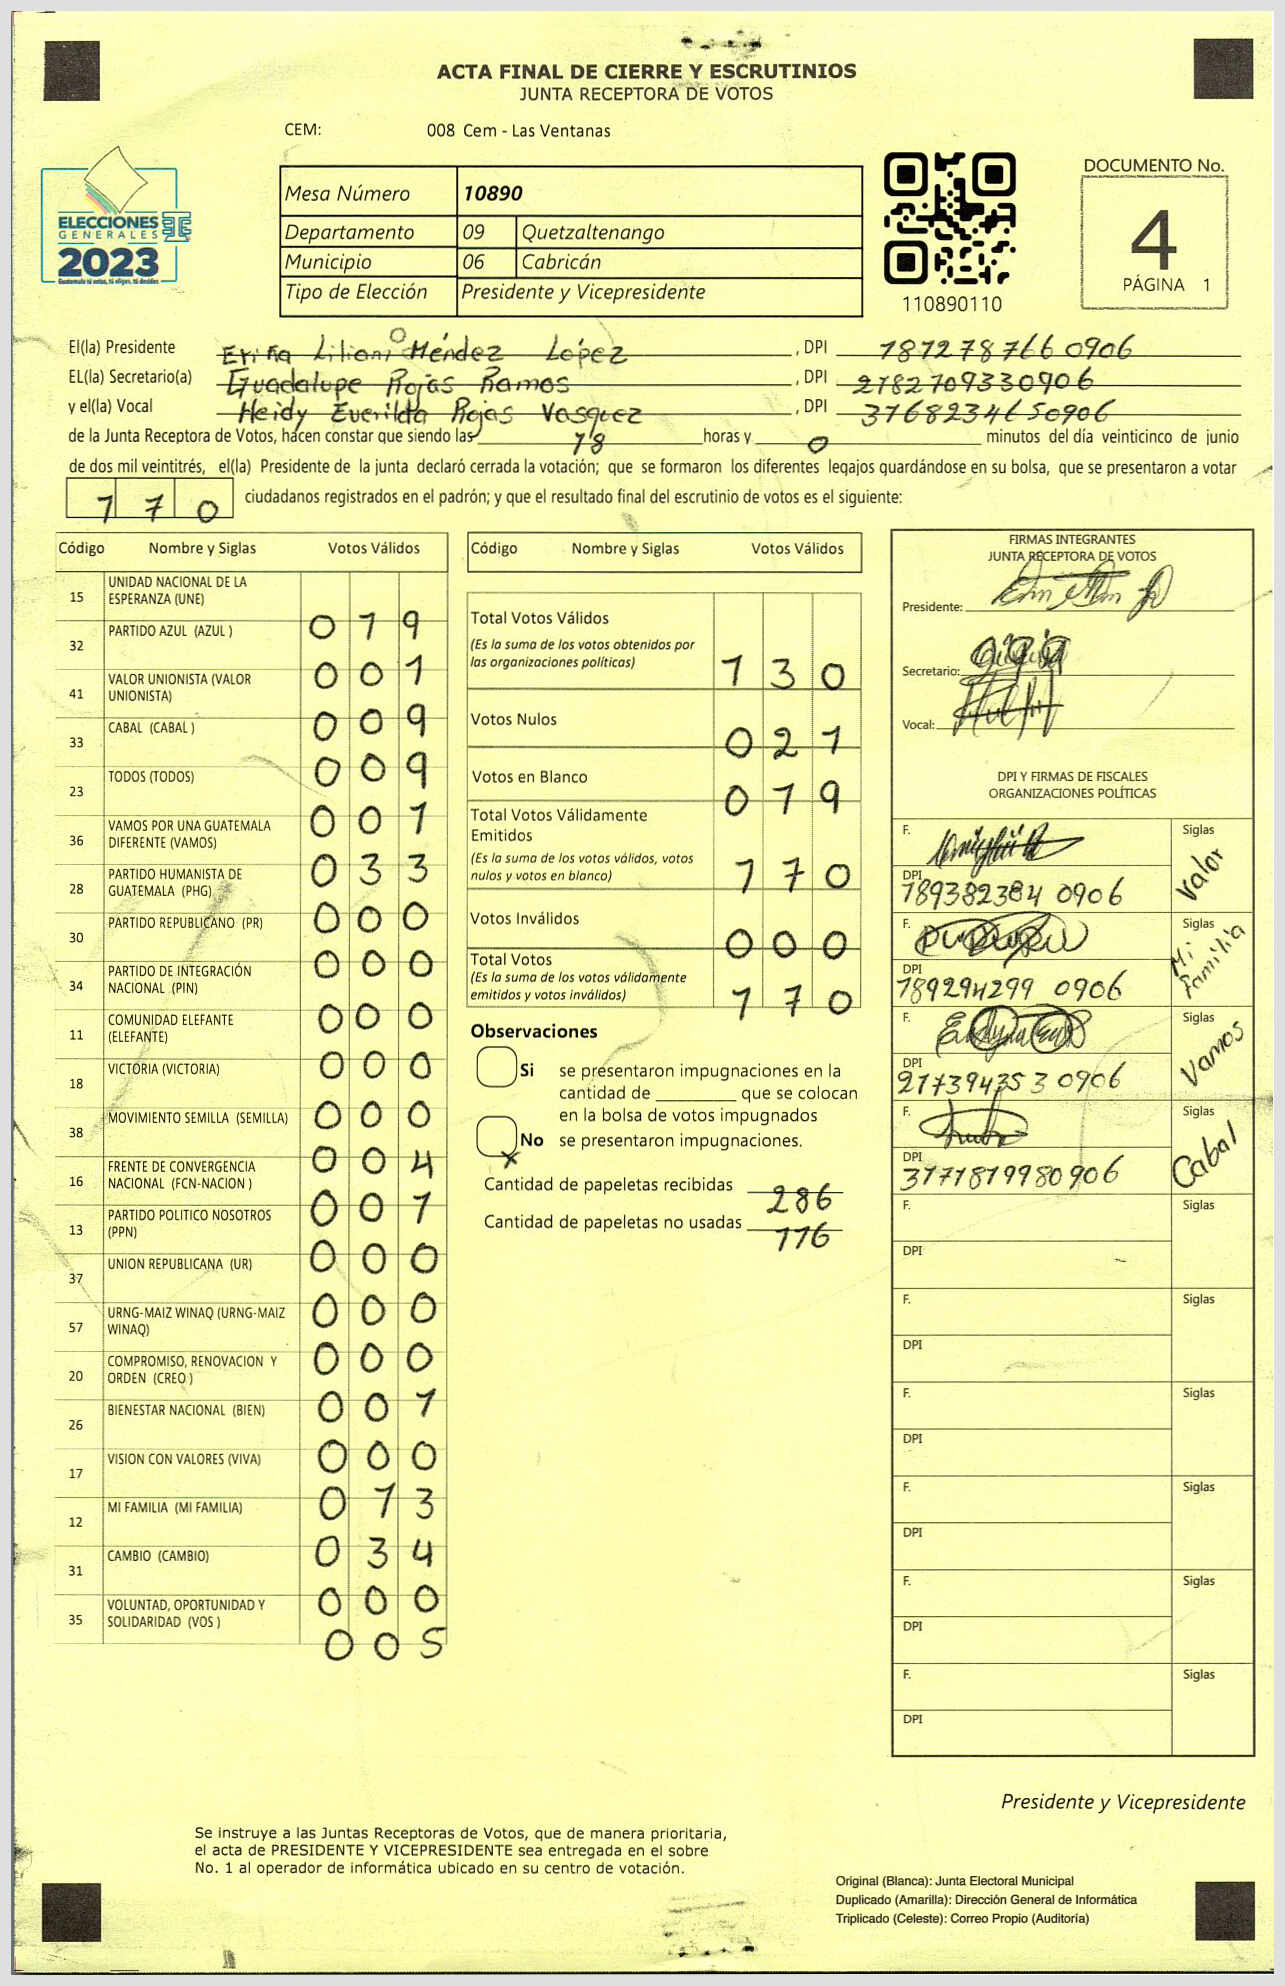 ACTA FINAL DE CIERRE Y ESCRUTINIOS
JUNTA RECEPTORA DE VOTOS
CEM: 008 Cem - Las Ventanas
ELECCIONES
GENERALES
2023
Guatemala tú votas, tú eliges, tú decides
Mesa Número 10890
Departamento 09 Quetzaltenango
Municipio 06 Cabricán
Tipo de Elección Presidente y Vicepresidente
110890110
DOCUMENTO No.
4
PÁGINA 1
El(la) Presidente Liliani Méndez López , DPI 1872787660906
EL(la) Secretario(a) Guadalupe Rojas Ramos , DPI 2182709330906
y el(la) Vocal Heidy Everilda Rojas Vasquez , DPI 3768234650906
de la Junta Receptora de Votos, hacen constar que siendo las 18 horas y 0 minutos del día veinticinco de junio
de dos mil veintitrés, el(la) Presidente de la junta declaró cerrada la votación; que se formaron los diferentes legajos guardándose en su bolsa, que se presentaron a votar
170 ciudadanos registrados en el padrón; y que el resultado final del escrutinio de votos es el siguiente:
Código Nombre y Siglas Votos Válidos
15 UNIDAD NACIONAL DE LA ESPERANZA (UNE) 019
32 PARTIDO AZUL (AZUL ) 001
41 VALOR UNIONISTA (VALOR UNIONISTA) 009
33 CABAL (CABAL ) 009
23 TODOS (TODOS) 001
36 VAMOS POR UNA GUATEMALA DIFERENTE (VAMOS) 033
28 PARTIDO HUMANISTA DE GUATEMALA (PHG) 000
30 PARTIDO REPUBLICANO (PR) 000
34 PARTIDO DE INTEGRACIÓN NACIONAL (PIN) 000
11 COMUNIDAD ELEFANTE (ELEFANTE) 000
18 VICTORIA (VICTORIA) 000
38 MOVIMIENTO SEMILLA (SEMILLA) 004
16 FRENTE DE CONVERGENCIA NACIONAL (FCN-NACION ) 001
13 PARTIDO POLITICO NOSOTROS (PPN) 000
37 UNION REPUBLICANA (UR) 000
57 URNG-MAIZ WINAQ (URNG-MAIZ WINAQ) 000
20 COMPROMISO, RENOVACION Y ORDEN (CREO ) 001
26 BIENESTAR NACIONAL (BIEN) 000
17 VISION CON VALORES (VIVA) 013
12 MI FAMILIA (MI FAMILIA) 034
31 CAMBIO (CAMBIO) 000
35 VOLUNTAD, OPORTUNIDAD Y SOLIDARIDAD (VOS ) 005
Código Nombre y Siglas Votos Válidos
Total Votos Válidos 130
(Es la suma de los votos obtenidos por
las organizaciones políticas)
Votos Nulos 021
Votos en Blanco 019
Total Votos Válidamente
Emitidos 170
(Es la suma de los votos válidos, votos
nulos y votos en blanco)
Votos Inválidos 000
Total Votos 170
(Es la suma de los votos válidamente
emitidos y votos inválidos)
Observaciones
Si se presentaron impugnaciones en la
cantidad de ________ que se colocan
en la bolsa de votos impugnados
x No se presentaron impugnaciones.
Cantidad de papeletas recibidas 286
Cantidad de papeletas no usadas 116
FIRMAS INTEGRANTES
JUNTA RECEPTORA DE VOTOS
Presidente:
Secretario:
Vocal:
DPI Y FIRMAS DE FISCALES
ORGANIZACIONES POLÍTICAS
F. Siglas Valor
DPI 189382384 0906
F. Siglas Mi Familia
DPI 189294299 0906
F. Siglas Vamos
DPI 217394353 0906
F. Siglas Cabal
DPI 3171819980906
F. Siglas
DPI
F. Siglas
DPI
F. Siglas
DPI
F. Siglas
DPI
F. Siglas
DPI
F. Siglas
DPI
Presidente y Vicepresidente
Se instruye a las Juntas Receptoras de Votos, que de manera prioritaria,
el acta de PRESIDENTE Y VICEPRESIDENTE sea entregada en el sobre
No. 1 al operador de informática ubicado en su centro de votación.
Original (Blanca): Junta Electoral Municipal
Duplicado (Amarilla): Dirección General de Informática
Triplicado (Celeste): Correo Propio (Auditoría)